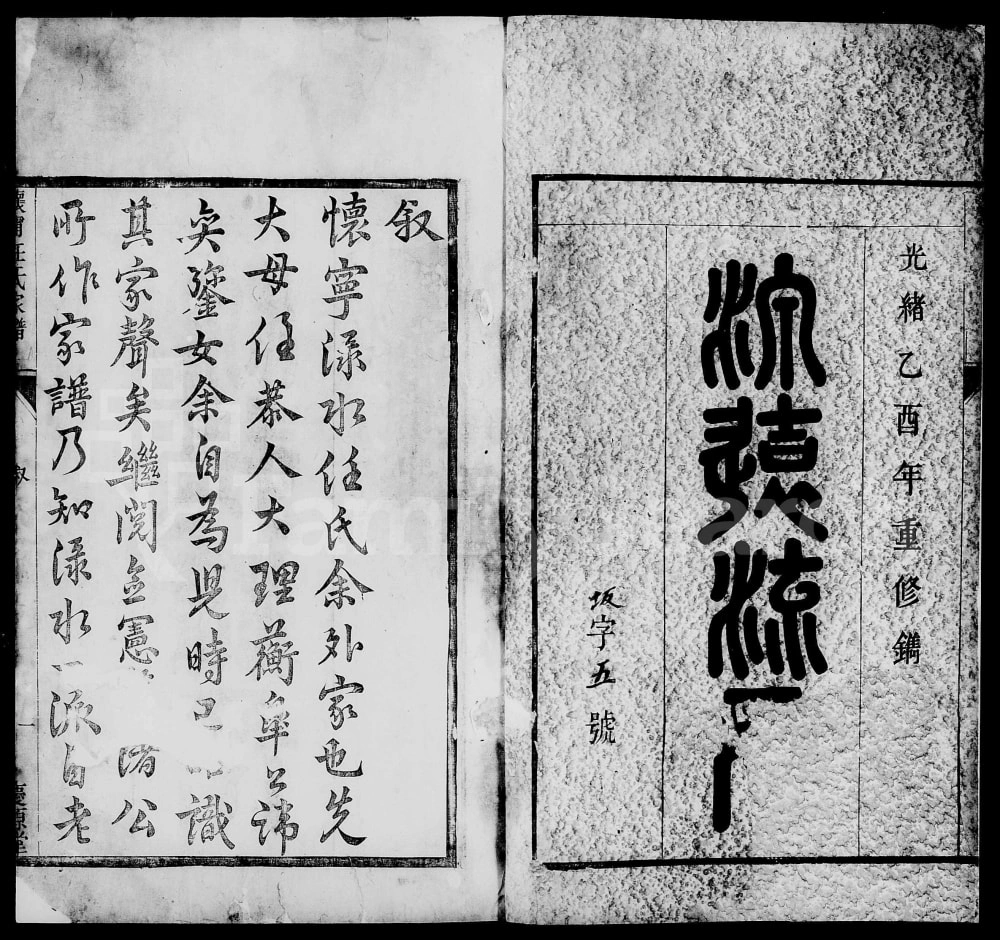 光緒乙酉年重修鐫
源遠流長
坂字五號
叙
懷寧渌水任氏余外家也先
大母任恭人大理蘅皐公諱
奕鑾女余自為児時已 識
其家聲矣繼閱 憲 公
所作家譜乃知渌水一派自老
任氏家譜
叙
一